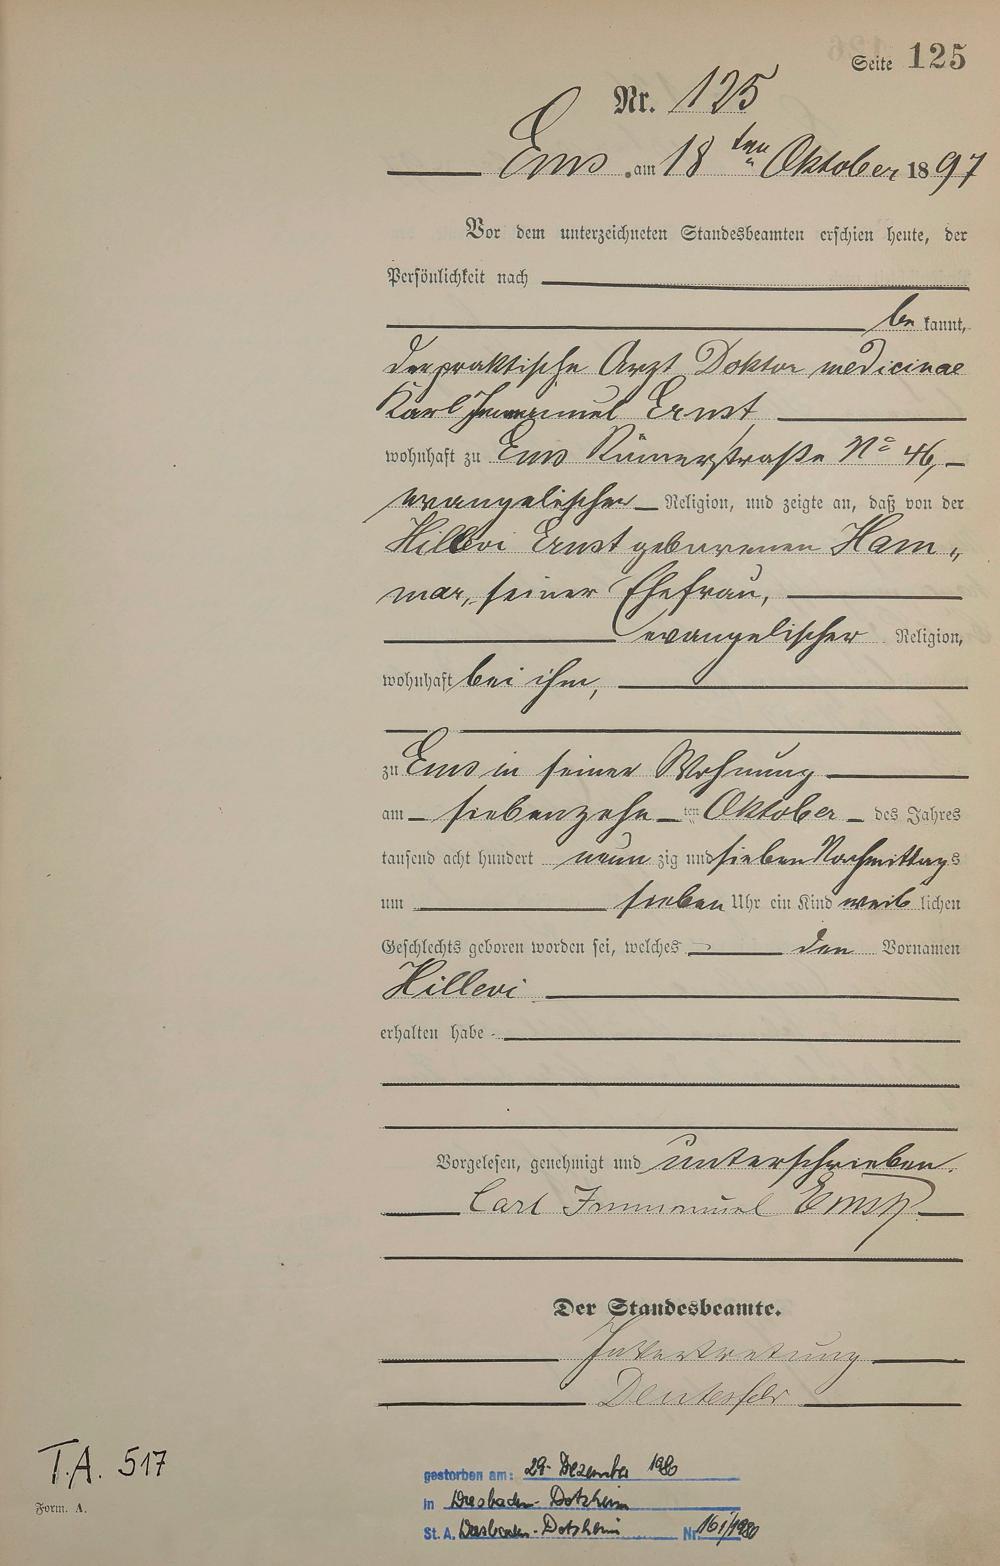 Seite 125
Nr. 125
Ems am 18 ten Oktober 1897
Vor dem unterzeichneten Standesbeamten erschien heute, der
Persönlichkeit nach
be kannt,
der praktische Arzt Doktor medicinae
Karl Immanuel Ernst
wohnhaft zu Ems Römerstraße No 46,
evangelischer Religion, und zeigte an, daß von der
Hillevi Ernst geborenen Ham„
mar, seiner Ehefrau,
evangelischer Religion,
wohnhaft bei ihm,
zu Ems in seiner Wohnung
am siebenzehn ten Oktober des Jahres
tausend acht hundert neun zig und sieben Nachmittags
um sieben Uhr ein Kind weib lichen
Geschlechts geboren worden sei, welches den Vornamen
Hillevi
erhalten habe
Vorgelesen, genehmigt und unterschrieben.
Carl Immanuel Ernst
Der Standesbeamte.
In Vertretung
T.A. 517
Form. A.
gestorben am: 29. Dezember 1980
in Wiesbaden-Dotzheim
St. A. Wiesbaden-Dotzheim Nr. 161/1980